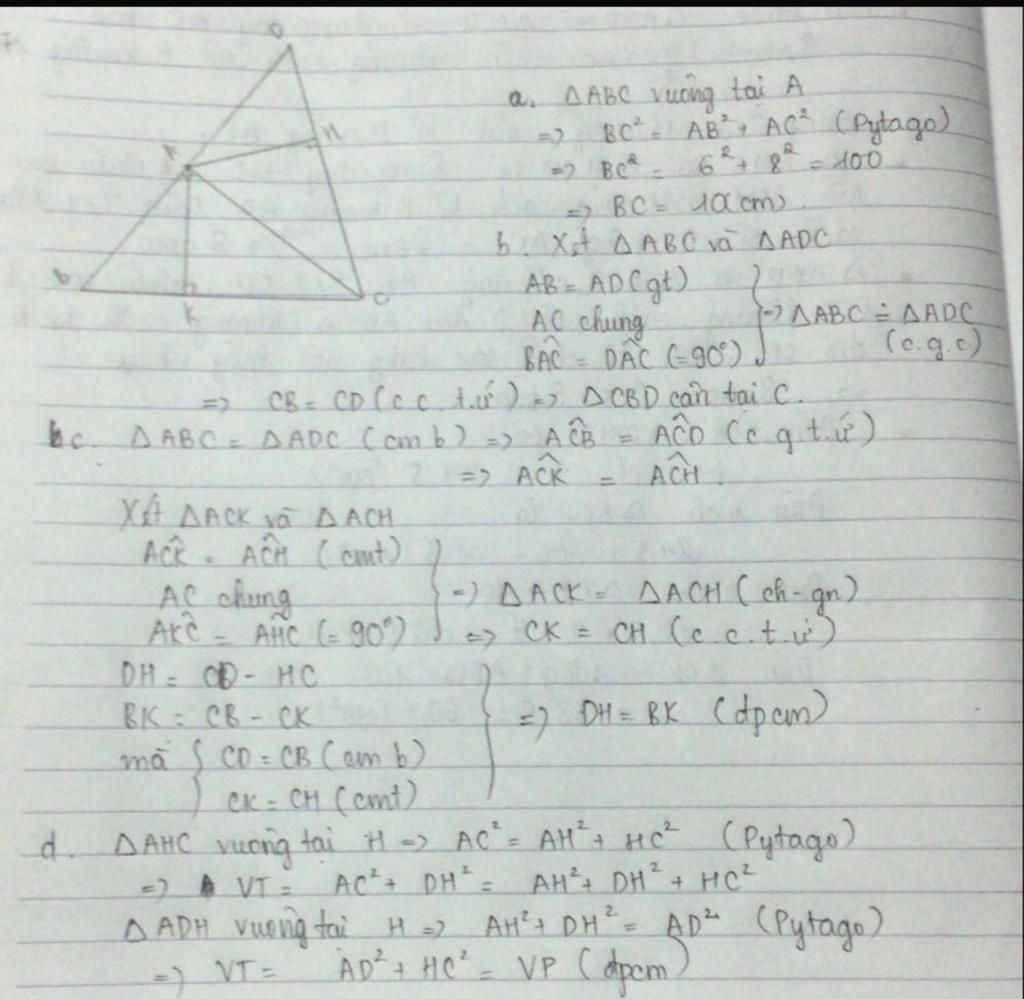 D
A
H
B
K
C
a. ΔABC vuông tại A
=> BC² = AB² + AC² (Pytago)
=> BC² = 6² + 8² = 100
=> BC = 10(cm).
b. Xét ΔABC và ΔADC
AB = AD (gt)
AC chung
BÂC = DÂC (= 90°)
=> ΔABC = ΔADC
(c.g.c)
=> CB = CD (c.c.t.ứ) => ΔCBD cân tại C.
c. ΔABC = ΔADC (cm b) => AĈB = AĈD (c.g.t.ứ)
=> AĈK = AĈH.
Xét ΔACK và ΔACH
AĈK = AĈH (cmt)
AC chung
AK̂C = AĤC (= 90°)
=> ΔACK = ΔACH (ch-gn)
=> CK = CH (c.c.t.ứ)
DH = CD - HC
BK = CB - CK
mà { CD = CB (cm b)
CK = CH (cmt)
=> DH = BK (đpcm)
d. ΔAHC vuông tại H => AC² = AH² + HC² (Pytago)
=> VT = AC² + DH² = AH² + DH² + HC²
ΔADH vuông tại H => AH² + DH² = AD² (Pytago)
=> VT = AD² + HC² = VP (đpcm)